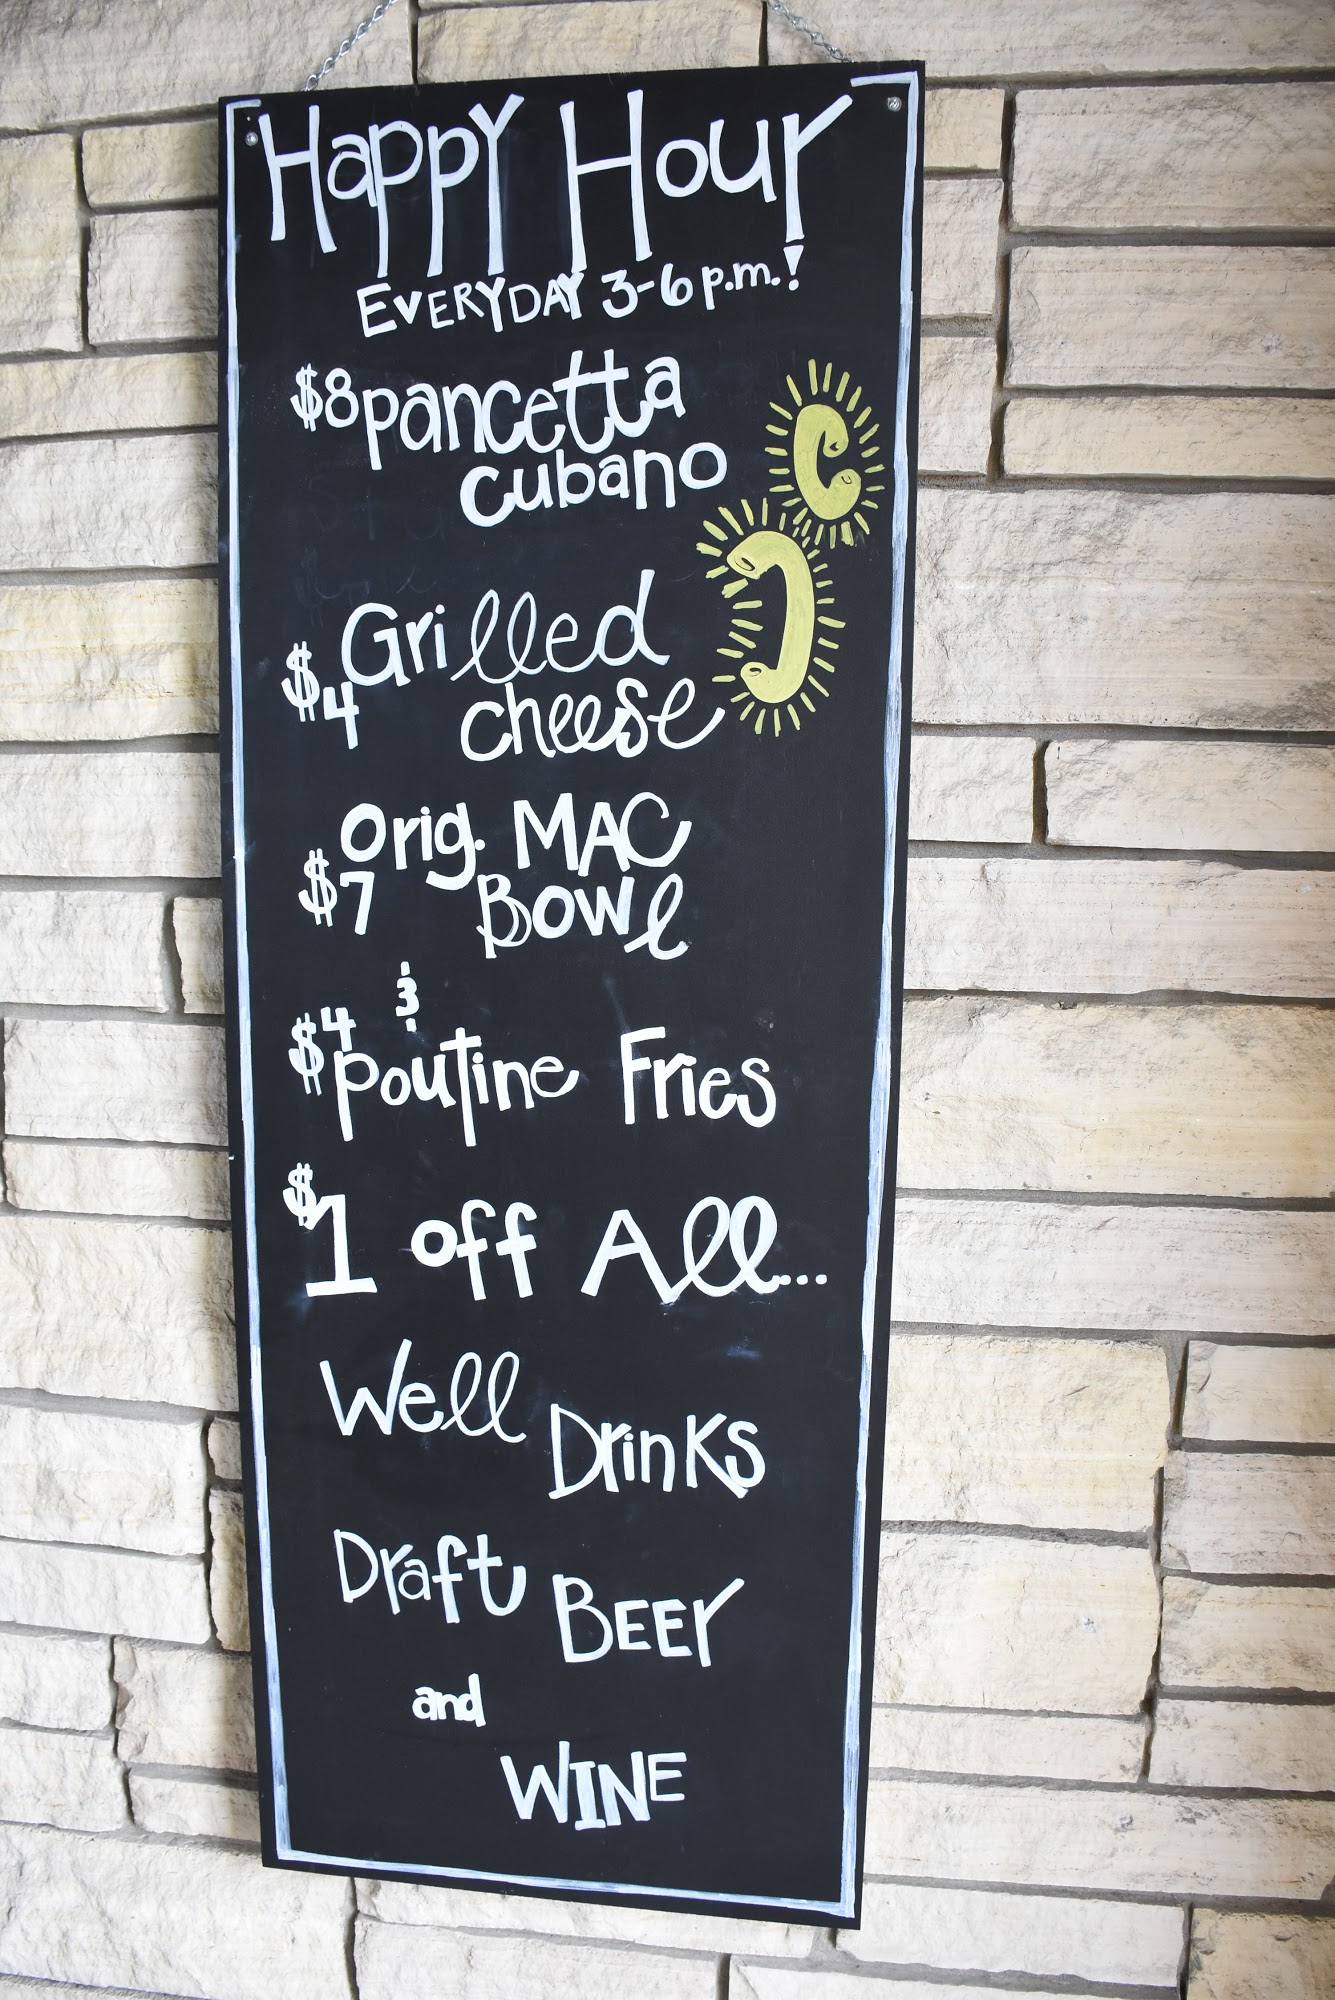 Happy Hour
EVERYDAY 3-6 p.m.!
$8 pancetta
cubano
$4 Grilled
cheese
$7 Orig. MAC
Bowl
&
$4 Poutine Fries
$1 off All...
Well Drinks
Draft BEEr
and
WINE